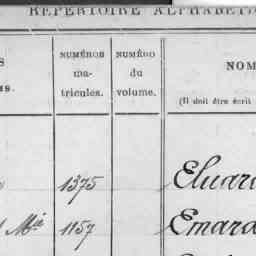 RÉPERTOIRE ALPHABÉT
NUMÉROS ma- tricules.
NUMÉRO du volume.
NOM
(Il doit être écrit
1375 Eluar
Mie 1157 Emara